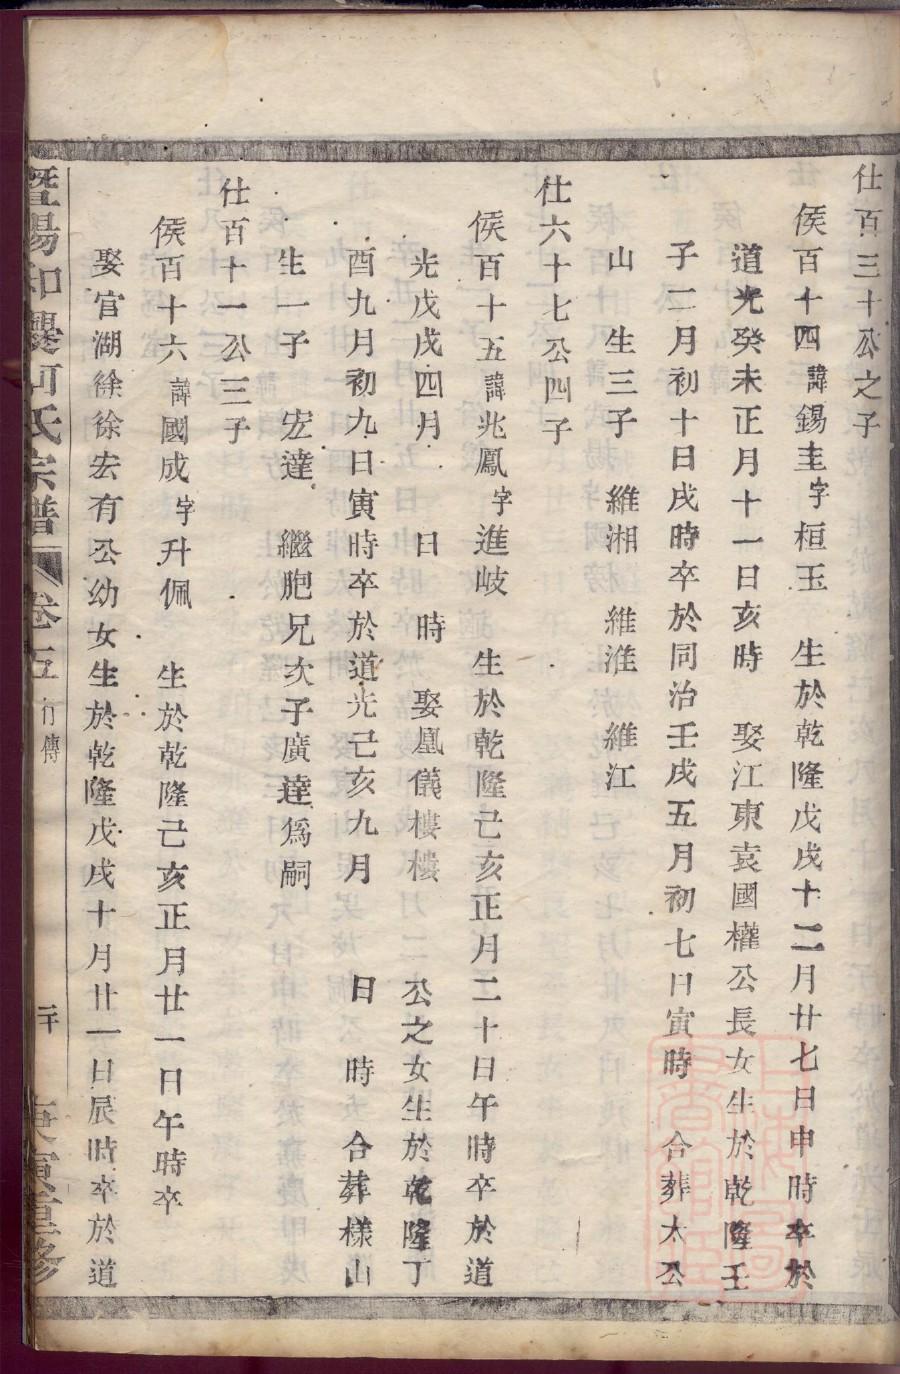 仕百三十公之子
侯百十四諱錫圭字桓玉　生於乾隆戊戌十二月廿七日申時卒於
道光癸未正月十一日亥時　娶江東袁國權公長女生於乾隆壬
子二月初十日戌時卒於同治壬戌五月初七日寅時　合葬太公
山　生三子　維湘　維淮　維江
仕六十七公四子
侯百十五諱兆鳳字進岐　生於乾隆己亥正月二十日午時卒於道
光戊戌四月　日　時　娶凰儀樓樓　公之女生於乾隆丁
酉九月初九日寅時卒於道光己亥九月　日　時　合葬樣山
生一子　宏達　繼胞兄次子廣達爲嗣
仕百十一公三子
侯百十六諱國成字升佩　生於乾隆己亥正月廿一日午時卒
娶官湖徐徐宏有公幼女生於乾隆戊戌十月廿一日辰時卒於道
暨陽和何氏宗譜　卷五　行傳　二十　庚寅重修